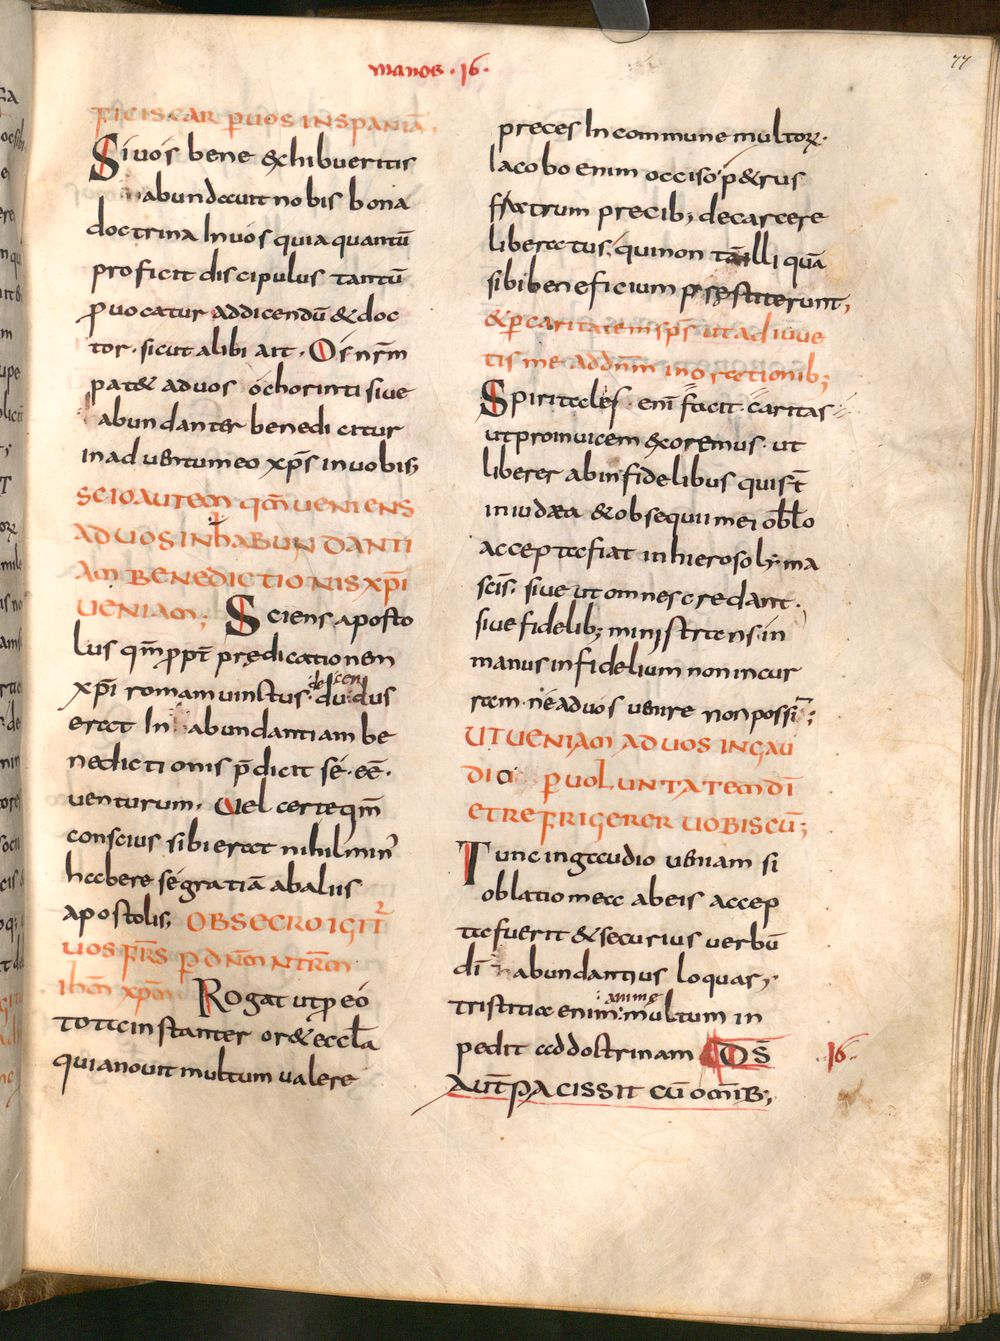 77
romanos · 16 ·
FICISCAR PUOS INSPANIĀ.
Si vos bene exhibueritis
abundauit nobis bona
doctrina In uos quia quantū
proficit discipulus tantū
puocatur addicendū & doc
tor · sicut alibi ait · Os nr̄m
pat& aduos ó chorinti siue
abundanter benedicitur
inaduentu meo xp̄s in uobis;
SCIO AUTEM qm̄ UENIENS
AD UOS IN hABUNDANTI
AM BENEDICTIONIS XPĪ
UENIAM; Sciens aposto
lus qm̄ ppt̄ predicationem
xpī romam uinctus · ducendus
ereet In abundantiam be
nedictionis p̄dicit sé · eē ·
uenturum · Uel certe qm̄
conscius sibi ereet nihil min'
habere se gratiā ab aliis
apostolis; OBSECRO IGIT²
UOS FR̄S P DNM NTR̄M
IhM XPM Rogat ut p eó
Tota instanter or& eccła
quia nouit multum ualere
preces In commune multoꝝ ·
Iacobo enim occiso p&rus
fratrum precib; de carcere
liberatus; qui non tā illi quā
sibi beneficium prestiterunt,
& p caritatem sp̄s ut adiuue
tis me addn̄m in orectionib;
Spiritales · enī facit · caritas
ut pro inuicem & oremus · ut
liberer ab infidelibus qui st̄
in iudæa & obsequii mei obł̄o
accepta fiat in hierosolyma
scīs · siue ut omnes credant ·
siue fidelib; ministrans · in
manus infidelium non incur
ram · ne aduos uenire non possī;
UT UENIAM AD UOS IN GAU
DIO P UOLUNTATEM DĪ
ET REFRIGERER UOBISCŪ;
Tunc in gaudio ueniam si
oblatio mea ab eis accep
ta fuerit & securius uerbū
dī abundantius loquar;
animę
tristitia enim multum in
pedit ad doctrinam DS̄ 16
AUT̄ PACIS SIT CŪ OMIB;